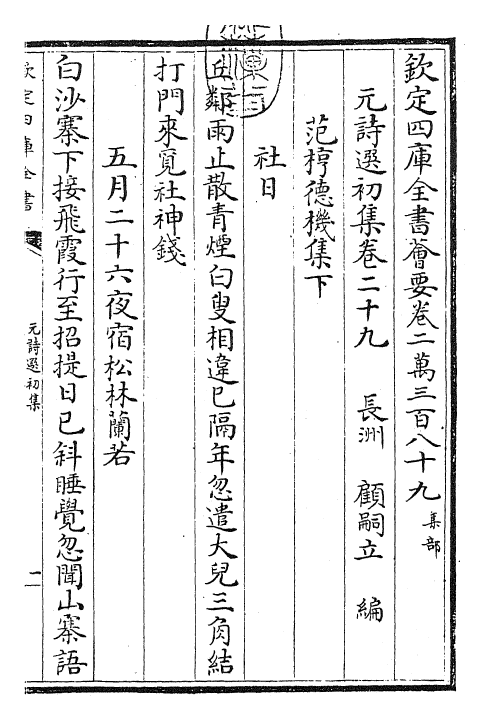 欽定四庫全書薈要卷二萬三百八十九集部
元詩選初集卷二十九 長洲 顧嗣立 編
范梈德機集下
社日
丘鄰雨止散青煙白叟相違已隔年忽遣大兒三角結
打門來覓社神錢
五月二十六夜宿松林蘭若
白沙寨下接飛霞行至招提日已斜睡覺忽聞山寨語
欽定四庫全書
元詩選初集